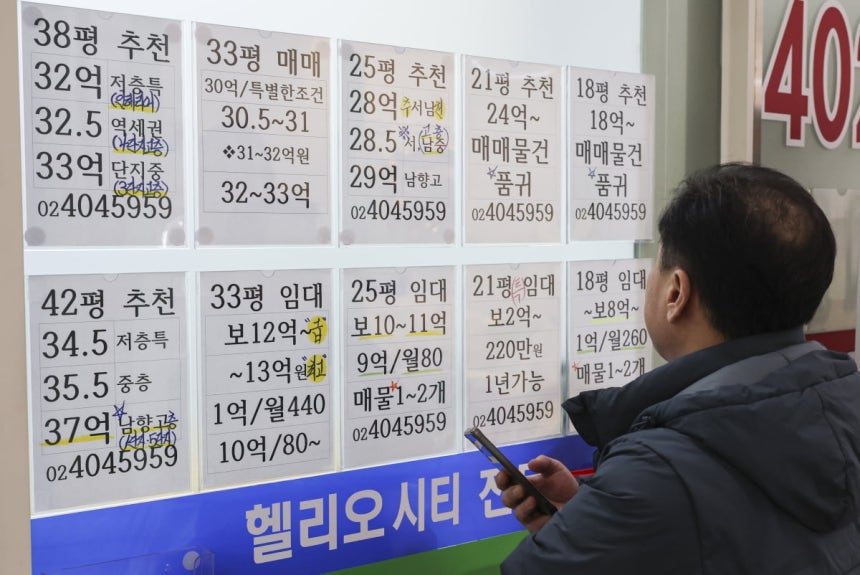 38평 추천
32억 저층특
32.5 역세권
33억 단지중
024045959
33평 매매
30억/특별한조건
30.5~31
❖31~32억원
32~33억
25평 추천
28억
28.5 서,남중
29억 남향고
024045959
21평 추천
24억~
매매물건
☆품귀
024045959
18평 추천
18억~
매매물건
☆품귀
024045959
402
42평 추천
34.5 저층특
35.5 중층
37억 남향고층
024045959
33평 임대
보12억~급
~13억원
1억/월440
10억/80~
25평 임대
보10~11억
9억/월80
매물1~2개
024045959
21평특임대
보2억~
220만원
1년가능
024045959
18평 임대
~보8억~
1억/월260
매물1~2개
헬리오시티 전